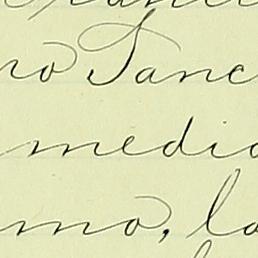 ro Sanc
medio
mo, la